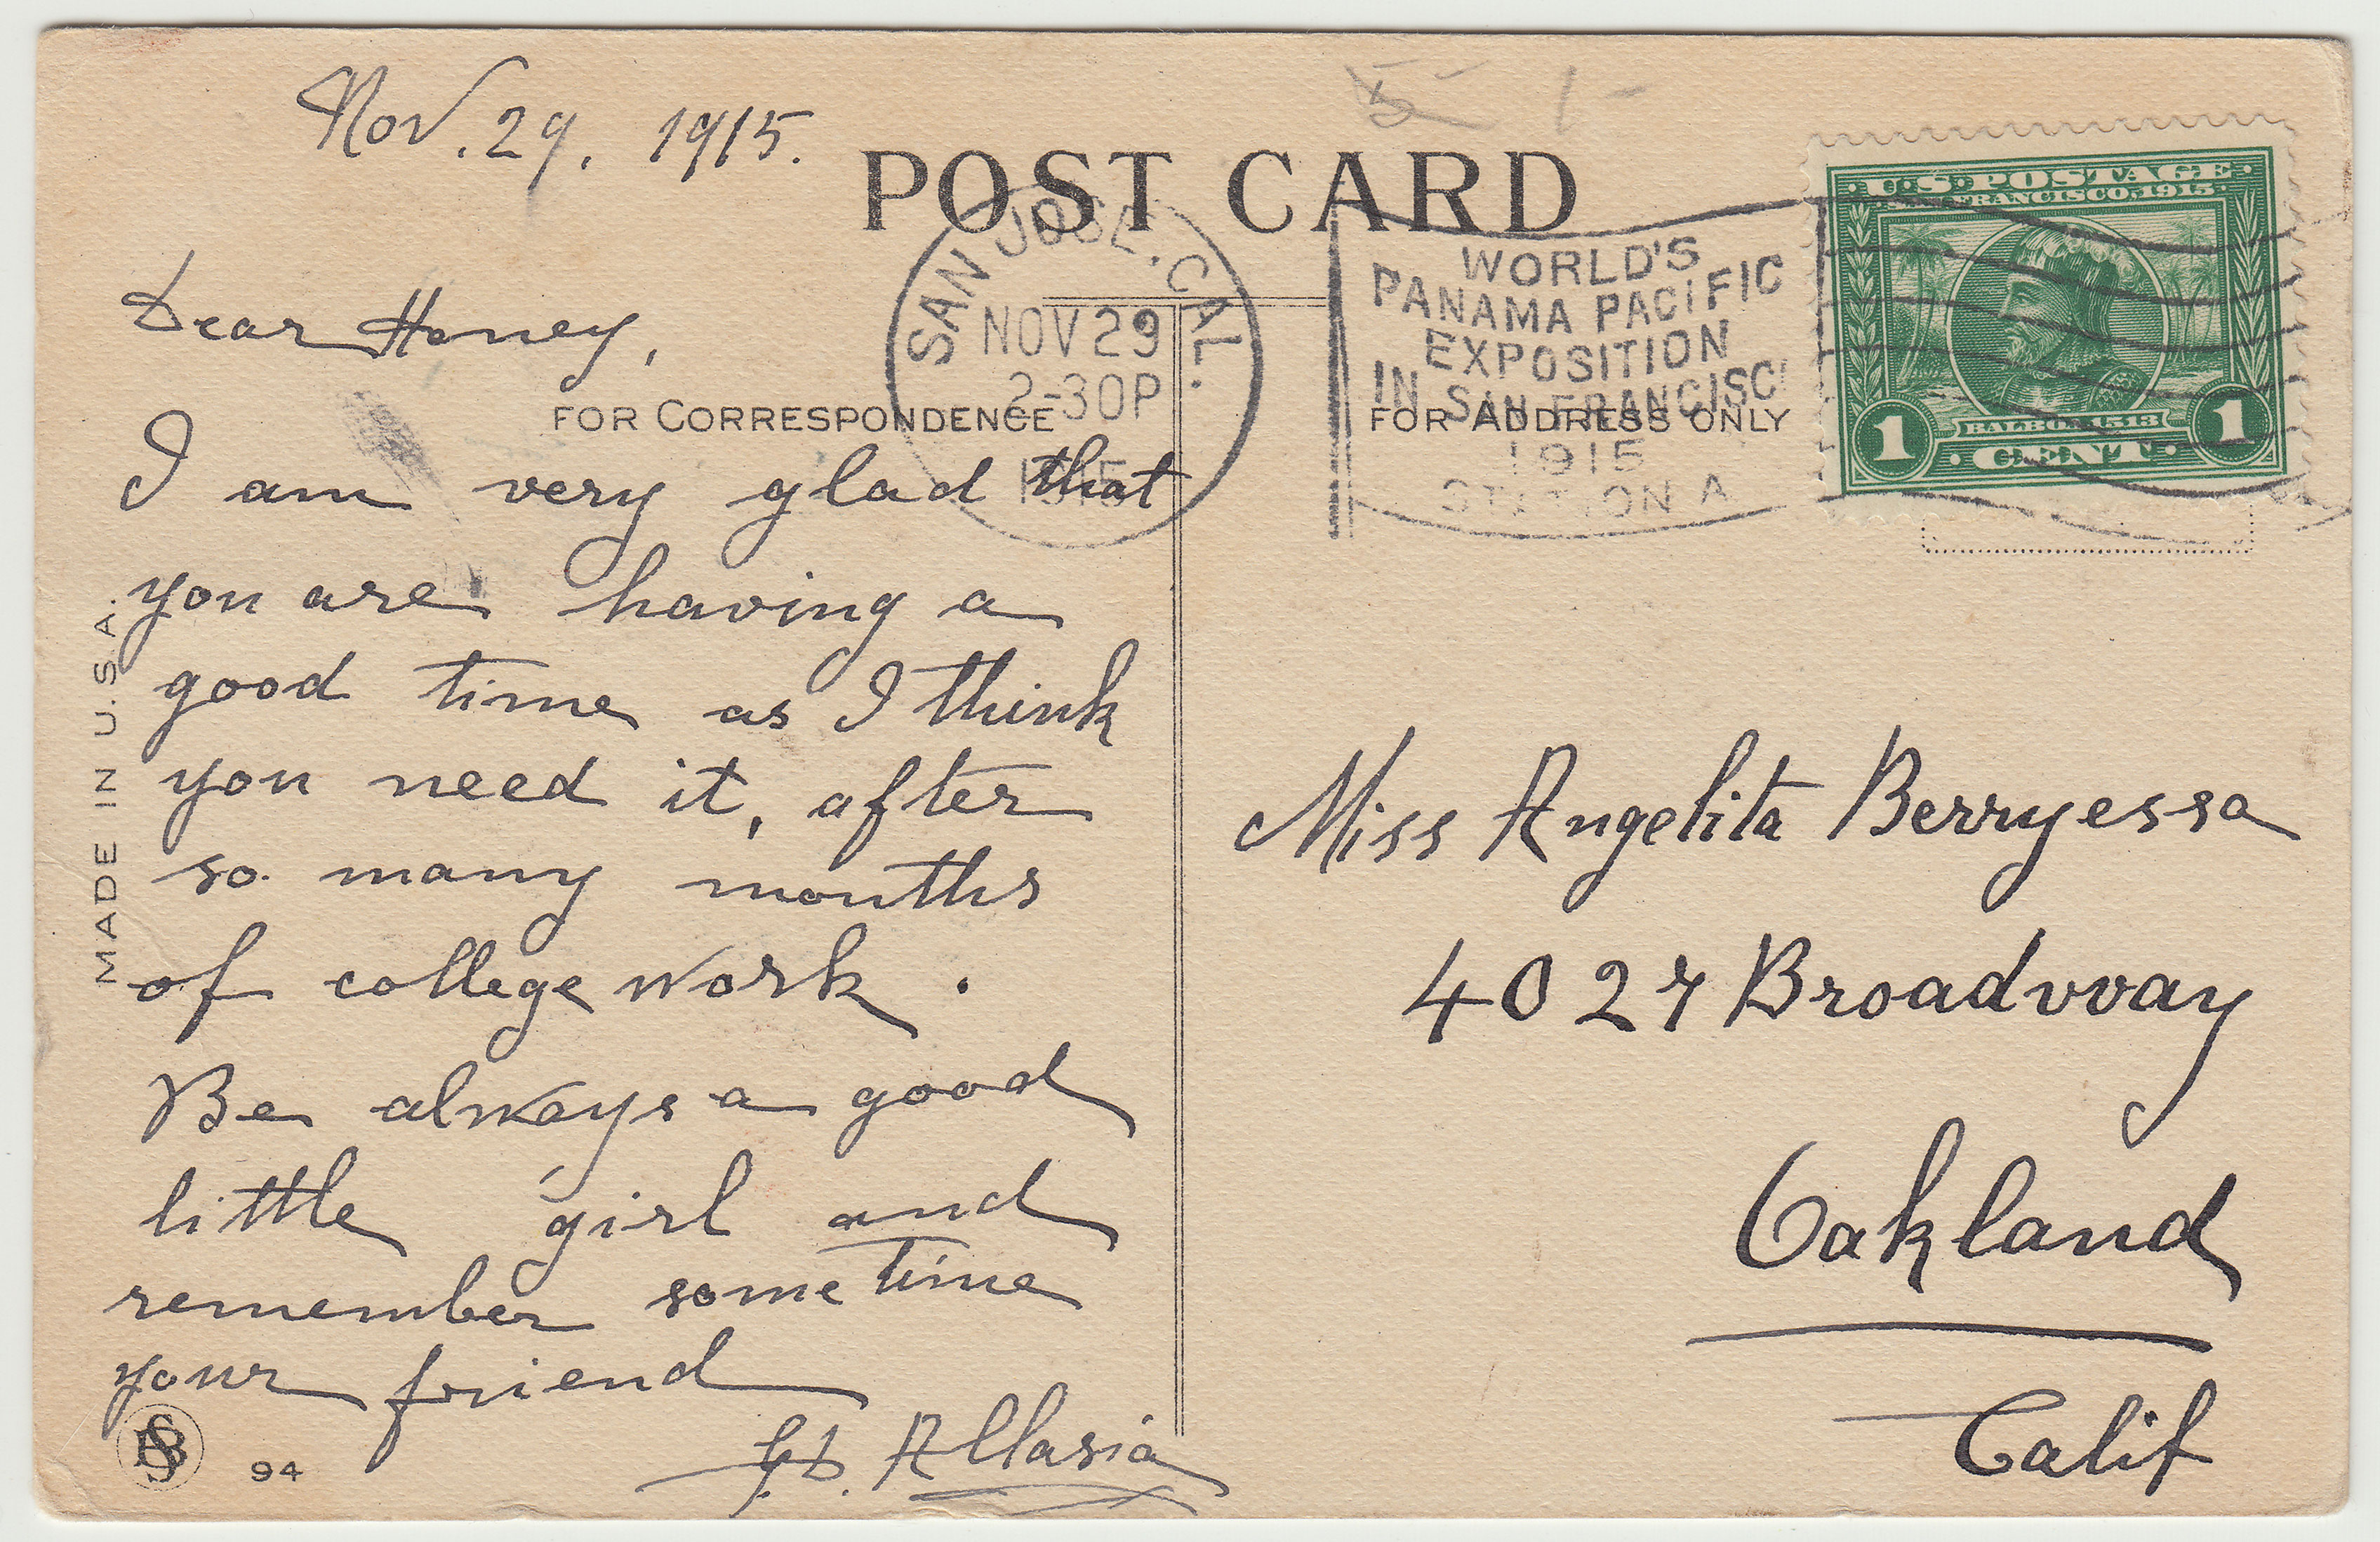 Nov. 29. 1915.
POST CARD
SAN JOSE, CAL.
NOV 29
2-30P
1915
WORLD'S
PANAMA PACIFIC
EXPOSITION
IN SAN FRANCISC
1915
STATION A
U.S. POSTAGE
SAN FRANCISCO, 1915
BALBOA 1513
1 CENT 1
FOR CORRESPONDENCE
FOR ADDRESS ONLY
Dear Honey,
I am very glad that
you are having a
good time as I think
you need it, after
so many months
of college work.
Be always a good
little girl and
remember some time
your friend
Allasia
Miss Angelita Berryessa
4027 Broadway
Oakland
Calif
MADE IN U.S.A.
94